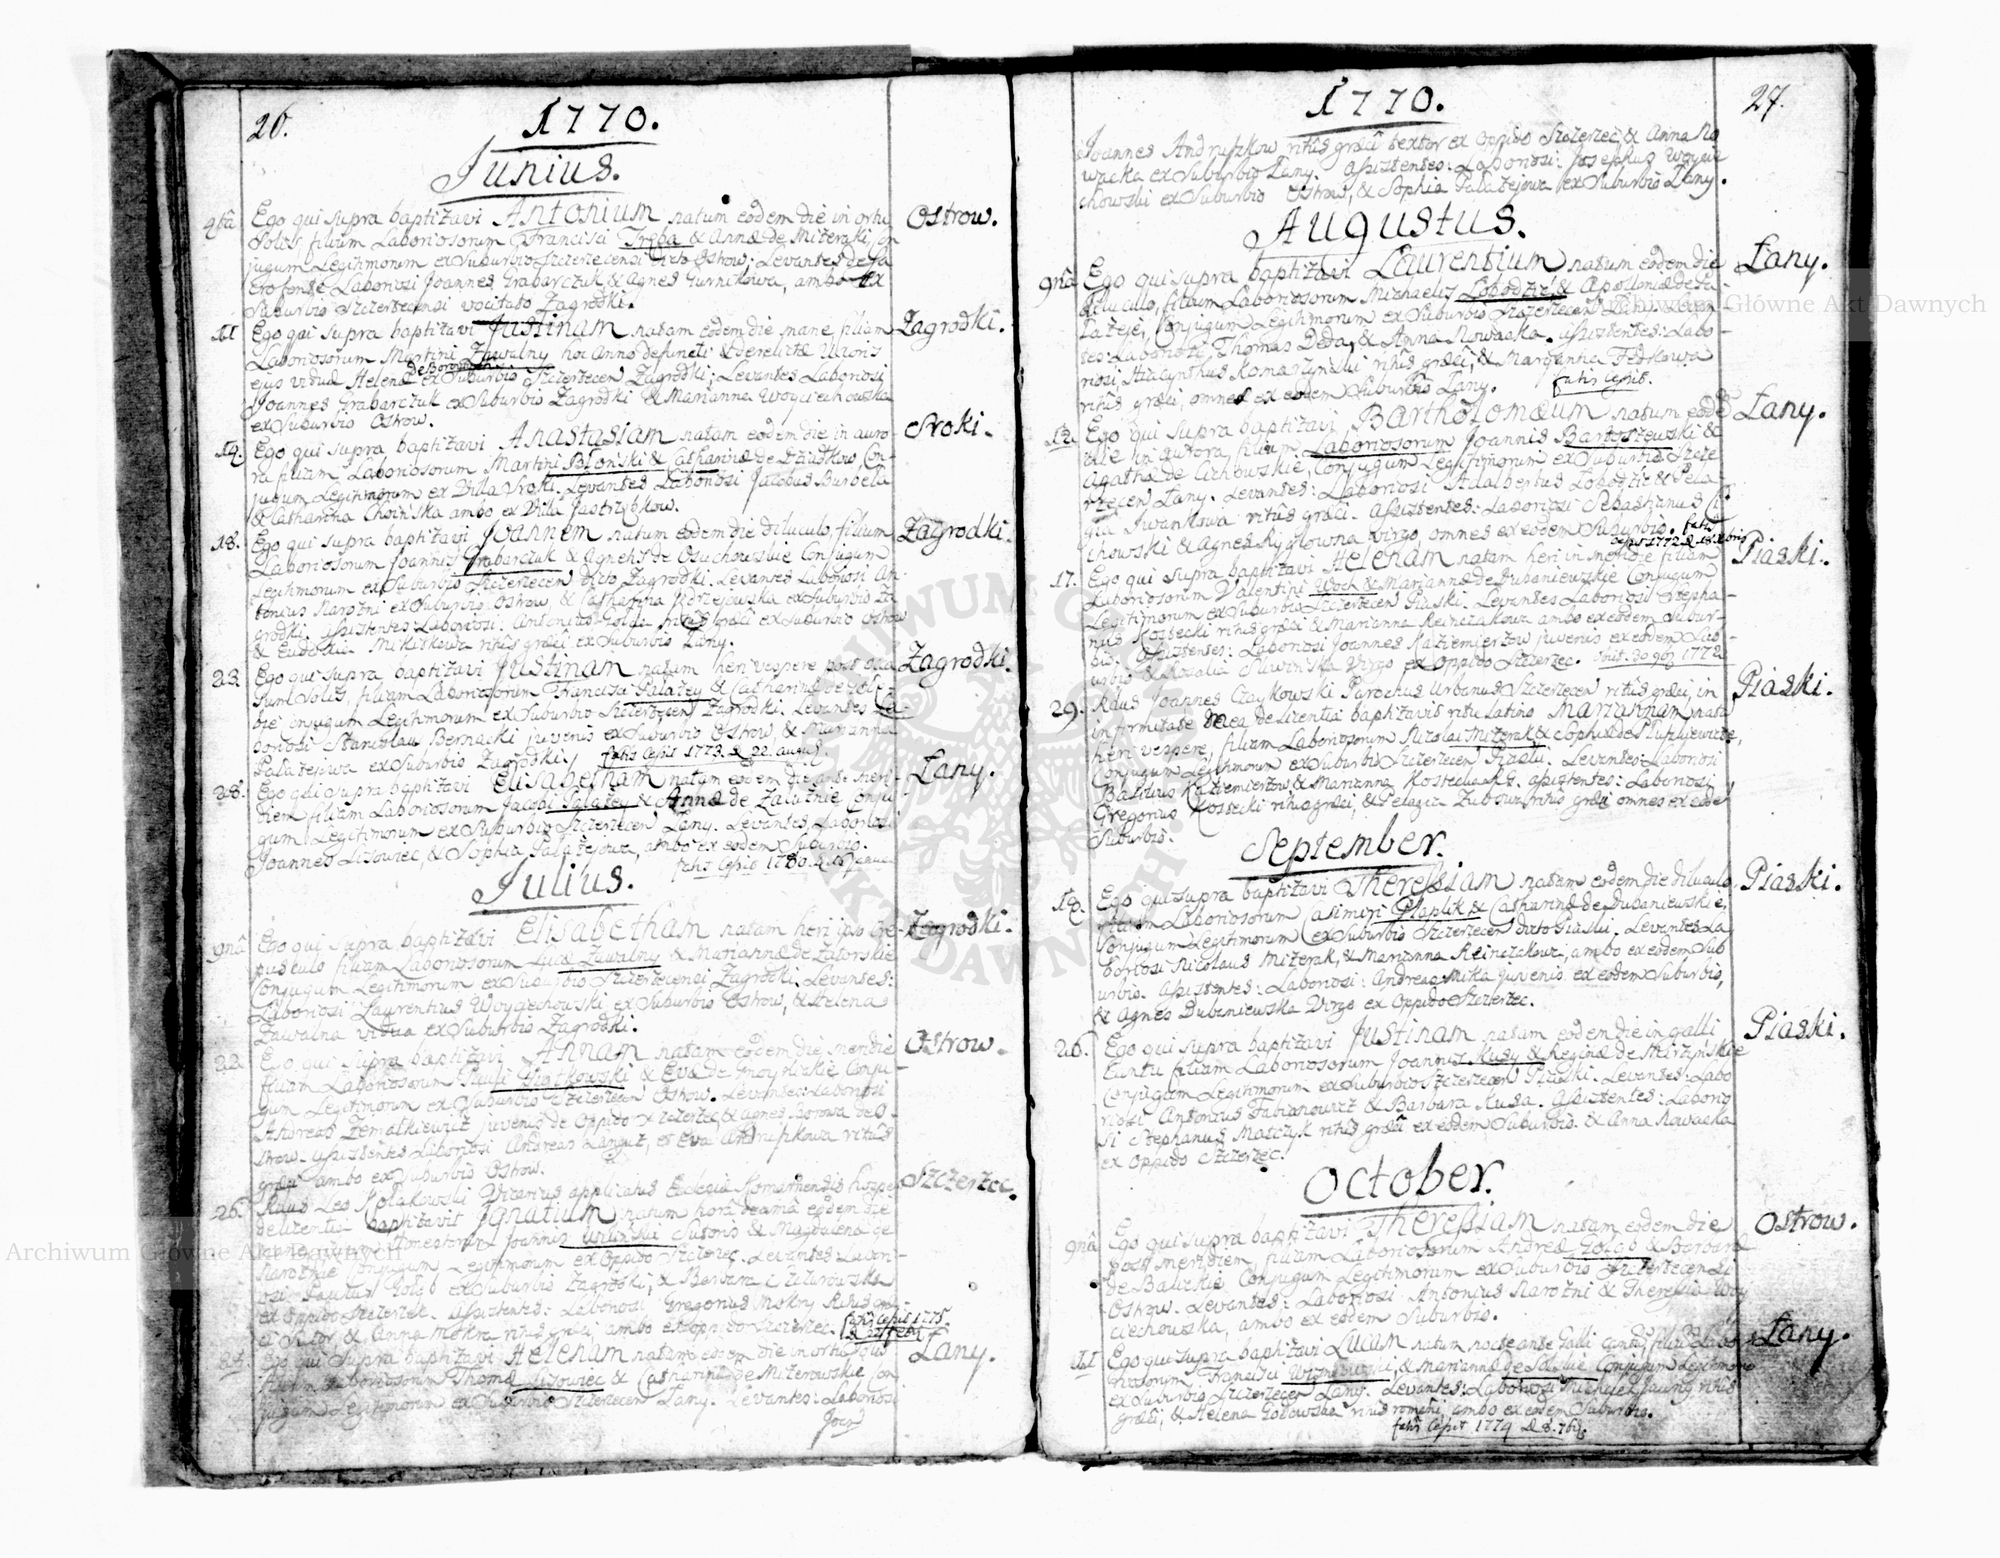 26.
1770.
Junius.
Ego qui supra baptizavi Antonium natum eodem die in ortu
Solis, filium Laboriosorum Francisci Tręba & Annæ de Mizeraki, Con
jugum Legitimorum ex Suburbio Szczerzecensi dicto Ostrow; Levantes de sa
cro fonte Laboriosi Joannes Grabarczuk & Agnes Gurnikowa, ambo ex
Suburbio Szczerzecensi vocitato Zagrodki.
Ostrow.
11 Ego qui supra baptizavi Justinam natam eodem die mane, filiam
Laboriosorum Martini Zawalny hoc Anno defuncti & derelictæ Uxoris
ejus viduæ Helenæ ex Suburbio Szczerzecen Zagrodki; Levantes Laboriosi
Joannes Grabarczuk ex Suburbio Zagrodki & Marianna Woyciechowska
ex Suburbio Ostrow.
Zagrodki.
Ego qui supra baptizavi Anastasiam natam eodem die in auro-
ra filiam Laboriosorum Martini Błonski & Catharinæ de Dziudkow, Con-
jugum Legitimorum ex Villa Sroki. Levantes Laboriosi Jacobus Burbela
& Catharina Choińska ambo ex Villa Jastrząbkow.
Sroki.
18. Ego qui supra baptizavi Joannem natum eodem die diluculo, filium
Laboriosorum Joannis Grabarczuk & Agnetis de Osuchowskie Conjugum
Legitimorum ex Suburbio Szczerzecen dicto Zagrodki. Levantes Laboriosi An-
tonius Narożni ex Suburbio Ostrow, & Catharina Jędrzejewska ex Suburbio Za
grodki. Assistentes Laboriosi: Antonius Golda ritus græci ex Suburbio Ostrow
& Eudoskia Mikitkowa ritus græci ex Suburbio Łany.
Zagrodki.
23. Ego qui supra baptizavi Justinam natam heri vespere post occa
sum Solis, filiam Laboriosorum Francisci Pałażey & Catharinæ de
Conjugum Legitimorum ex Suburbio Szczerzecen Zagrodki. Levantes La-
boriosi Stanislaus Bernacki juvenis ex Suburbio Ostrow, & Marianna
Pałażejowa ex Suburbio Zagrodki. fatis cessit 1773. d. 22. august
Zagrodki.
28. Ego qui supra baptizavi Elisabetham natam eodem die ante meri-
diem filiam Laboriosorum Jacobi Pałażey & Annæ de Załużnie Conju
gum Legitimorum ex Suburbio Szczerzecen Łany. Levantes Laboriosi
Joannes Lisowiec, & Sophia Pałażejowa, ambo ex eodem Suburbio.
fatis cessit 1780.
Łany.
Julius.
9nâ Ego qui supra baptizavi Elisabetham natam heri ipso cre-
pusculo filiam Laboriosorum Lucæ Zawalny & Mariannæ de Zatorskie
Conjugum Legitimorum ex Suburbio Szczerzecensi Zagrodki. Levantes:
Laboriosi Laurentius Woyciechowski ex Suburbio Ostrow, & Helena
Zawalna vidua ex Suburbio Zagrodki.
Zagrodki.
22. Ego qui supra baptizavi Annam natam eodem die meridie
filiam Laboriosorum Pauli Piotkowski & Evæ de Conju
gum Legitimorum ex Suburbio Szczerzecen Ostrow. Levantes: Laboriosi
Andreas Zemalkiewicz juvenis de Oppido Szczerzec, & Agnes de O-
strow. Assistentes Laboriosi Andreas Langut, et Eva Andruszkowa ritus
græci ambo ex Suburbio Ostrow.
Ostrow.
26. Rdus Leo Kołakowski Vicarius applicatus Ecclesiæ Komarnensis
de licentia baptizavit Ignatium natum hora decima eodem die
mane, filium Honestorum Joannis Sutoris & Magdalenæ de
Narożnie Conjugum Legitimorum ex Oppido Szczerzec. Levantes Labori-
osi Paulus Gołąb ex Suburbio Zagrodki; & Barbara Czeżurowska
ex Oppido Szczerzec. Assistentes: Laboriosi Gregorius Mokry Ritus græ
ci Sutor & Anna Mokra ritus græci, ambo ex Oppido Szczerzec. fatis cessit 1775.
Szczerzec.
Ego qui supra baptizavi Helenam natam eodem die in ortu Solis
filiam Laboriosorum Thomæ Lisowiec & Catharinæ de Mizerowskie Con
jugum Legitimorum ex Suburbio Szczerzecen Łany. Levantes: Laboriosi
Joannes
Łany.
27.
1770.
Joannes Andruszkow ritus græci textor ex Oppido Szczerzec, & Anna No
wacka ex Suburbio Łany. Assistentes: Laboriosi: Josephus Woycie
chowski ex Suburbio Ostrow, & Sophia Pałażejowa ex Suburbio Łany.
Augustus.
9nâ Ego qui supra baptizavi Laurentium natum eodem die
diluculo, filium Laboriosorum Michaelis Łobodzic & Apoloniæ de Pa-
łażeje, Conjugum Legitimorum ex Suburbio Szczerzecen Łany. Levan-
tes: Laboriosi Thomas Deda, & Anna Nowacka. Assistentes: Labo-
riosi, Hiacynthus Komarzynski ritus græci, & Marianna Fedkowa
ritus græci, omnes ex eodem Suburbio Łany. fatis cessit.
Łany.
12. Ego qui supra baptizavi Bartholomæum natum eodẽ
die in aurora, filium Laboriosorum Joannis Bartoszewski &
Agathæ de Cichowskie, Conjugum Legitimorum ex Suburbio Szcze
rzecen Łany. Levantes: Laboriosi Adalbertus Łobodzic & Pela
gia Iwankowa ritus græci. Assistentes: Laboriosi Sebastianus Ci
chowski & Agnes Ryglowna virgo, omnes ex eodem Suburbio. fatis
cessit 1772
Łany.
17. Ego qui supra baptizavi Helenam natam heri in meridie filiam
Laboriosorum Valentini Woch & Mariannæ de Dubaniewskie Conjugum
Legitimorum ex Suburbio Szczerzecen Piaski. Levantes Laboriosi Stepha-
nus Kossecki ritus græci & Marianna Reinczakowa ambo ex eodem Subur-
bio. Assistentes: Laboriosi Joannes Kazimierzow juvenis ex eodem Sub
urbio & Rosalia Sliwinska Virgo ex Oppido Szczerzec. obiit. 30 9br 1772
Piaski.
29. Rdus Joannes Czaykowski Parochus Urbanus Szczerzecen ritus græci, in
infirmitate mea de licentia baptizavit ritu Latino Mariannam natã
heri vespere, filiam Laboriosorum Nicolai Mizerak & Sophiæ de
Conjugum Legitimorum ex Suburbio Szczerzecen Piaski. Levantes: Laboriosi
Basilius Kazimierzow & Marianna Kostecka R.G. Assistentes: Laboriosi
Gregorius Kossecki ritus græci, & Pelagia Zubowa ritus græci omnes ex eodẽ
Suburbio.
Piaski.
September.
Ego qui supra baptizavi Theressiam natam eodem die diluculo,
filiam Laboriosorum Casimiri Plaplik & Catharinæ de Dubaniewskie,
Conjugum Legitimorum ex Suburbio Szczerzecen dicto Piaski. Levantes La
boriosi Nicolaus Mizerak, & Marianna Reinczakowa, ambo ex eodem Sub
urbio. Assistentes: Laboriosi: Andreas Mika juvenis ex eodem Suburbio,
& Agnes Dubaniewska Virgo ex Oppido Szczerzec.
Piaski.
26. Ego qui supra baptizavi Justinam natam eodem die in galli
cantu filiam Laboriosorum Joannis Kusy & Reginæ de Mirzynskie
Conjugum Legitimorum ex Suburbio Szczerzecen Piaski. Levantes: Labo
riosi Antonius Fabianowicz & Barbara Kusa. Assistentes: Laborio
si Stephanus Matczyk ritus græci ex eodem Suburbio. & Anna Nowacka
ex Oppido Szczerzec.
Piaski.
October.
9nâ Ego qui supra baptizavi Theressiam natam eodem die
post meridiem filiam Laboriosorum Andreæ Gołąb & Barbaræ
de Bauzkie Conjugum Legitimorum ex Suburbio Szczerzecensi
Ostrow. Levantes: Laboriosi Antonius Narożni & Theressia Woy
ciechowska, ambo ex eodem Suburbio.
Ostrow.
11 Ego qui supra baptizavi Lucam natum nocte ante Galli Cantũ, filiũ Labo
riosorum Francisci & Mariannæ Conjugum Legitimorũ
ex Suburbio Szczerzecen Łany. Levantes: Laboriosi Michael ritus
græci, & Helena Gołowska ritus romani, ambo ex eodem Suburbio.
fatis cessit 1774
Łany.
ARCHIWUM GŁÓWNE AKT DAWNYCH
Archiwum Główne Akt Dawnych
Archiwum Główne Akt Dawnych